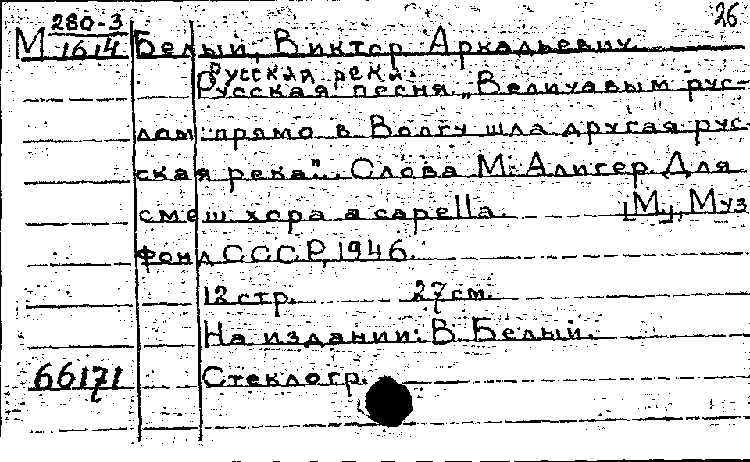 26
М 280-3
1614
Белый, Виктор Аркадьевич.
Русская река.
Русская песня „Величавым рус-
лом прямо в Волгу шла другая рус-
ская река". Слова М. Алигер. Для
смеш. хора a capella. [М.], Муз
фонд СССР, 1946.
12 стр. 27 см.
На издании: В. Белый.
66171 Стеклогр.